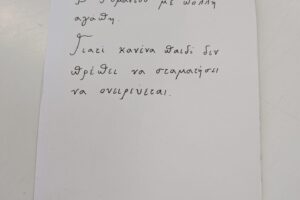 με πολλή
αγάπη.
Γιατί κανένα παιδί δεν
πρέπει να σταματήσει
να ονειρεύεται.